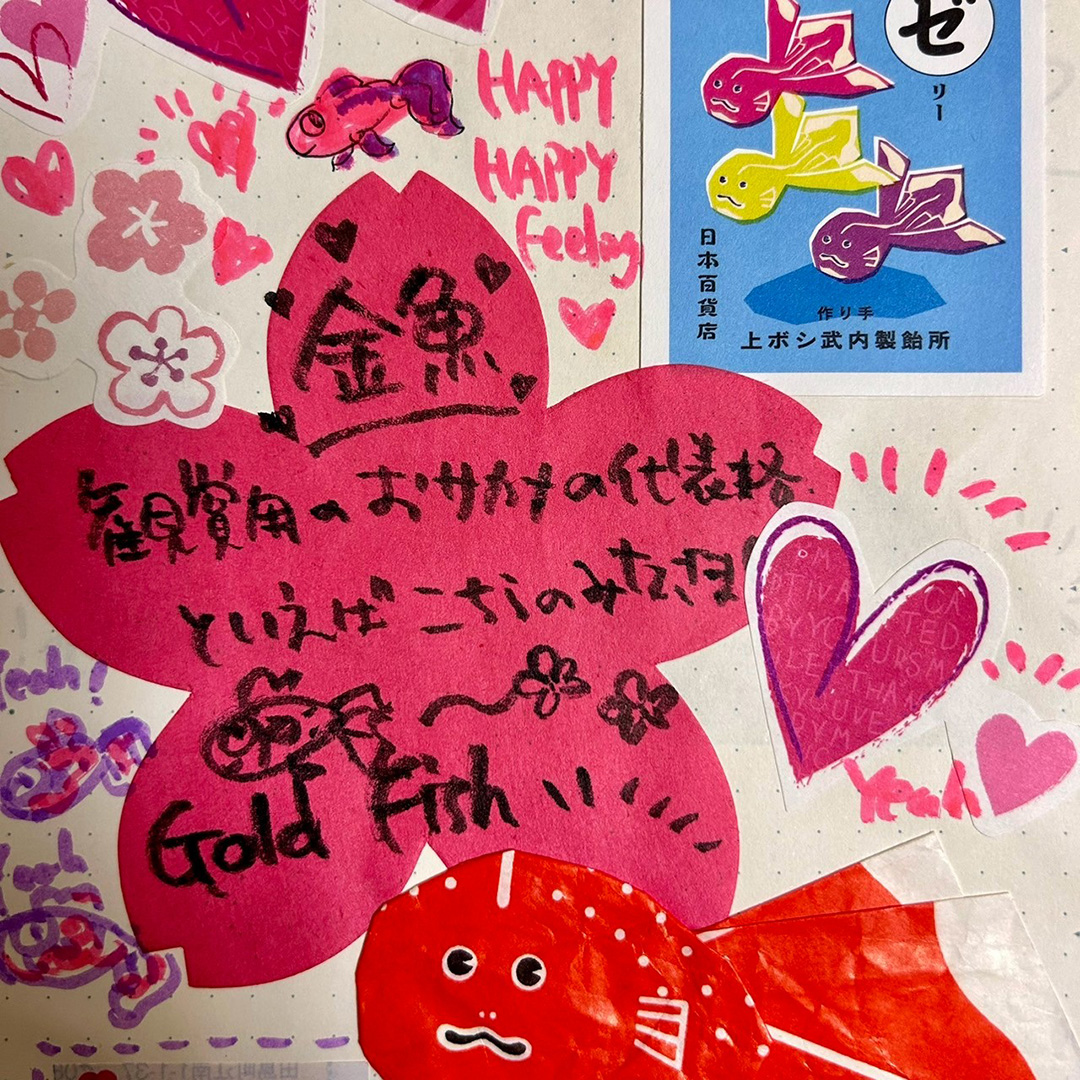 HAPPY
HAPPY
Feeling
ゼ
リー
日本百貨店
作り手
上ボシ武内製飴所
金魚
観賞用のおサカナの代表格
といえばこちらのみなさま!
Gold Fish
Yeah!
Yeah